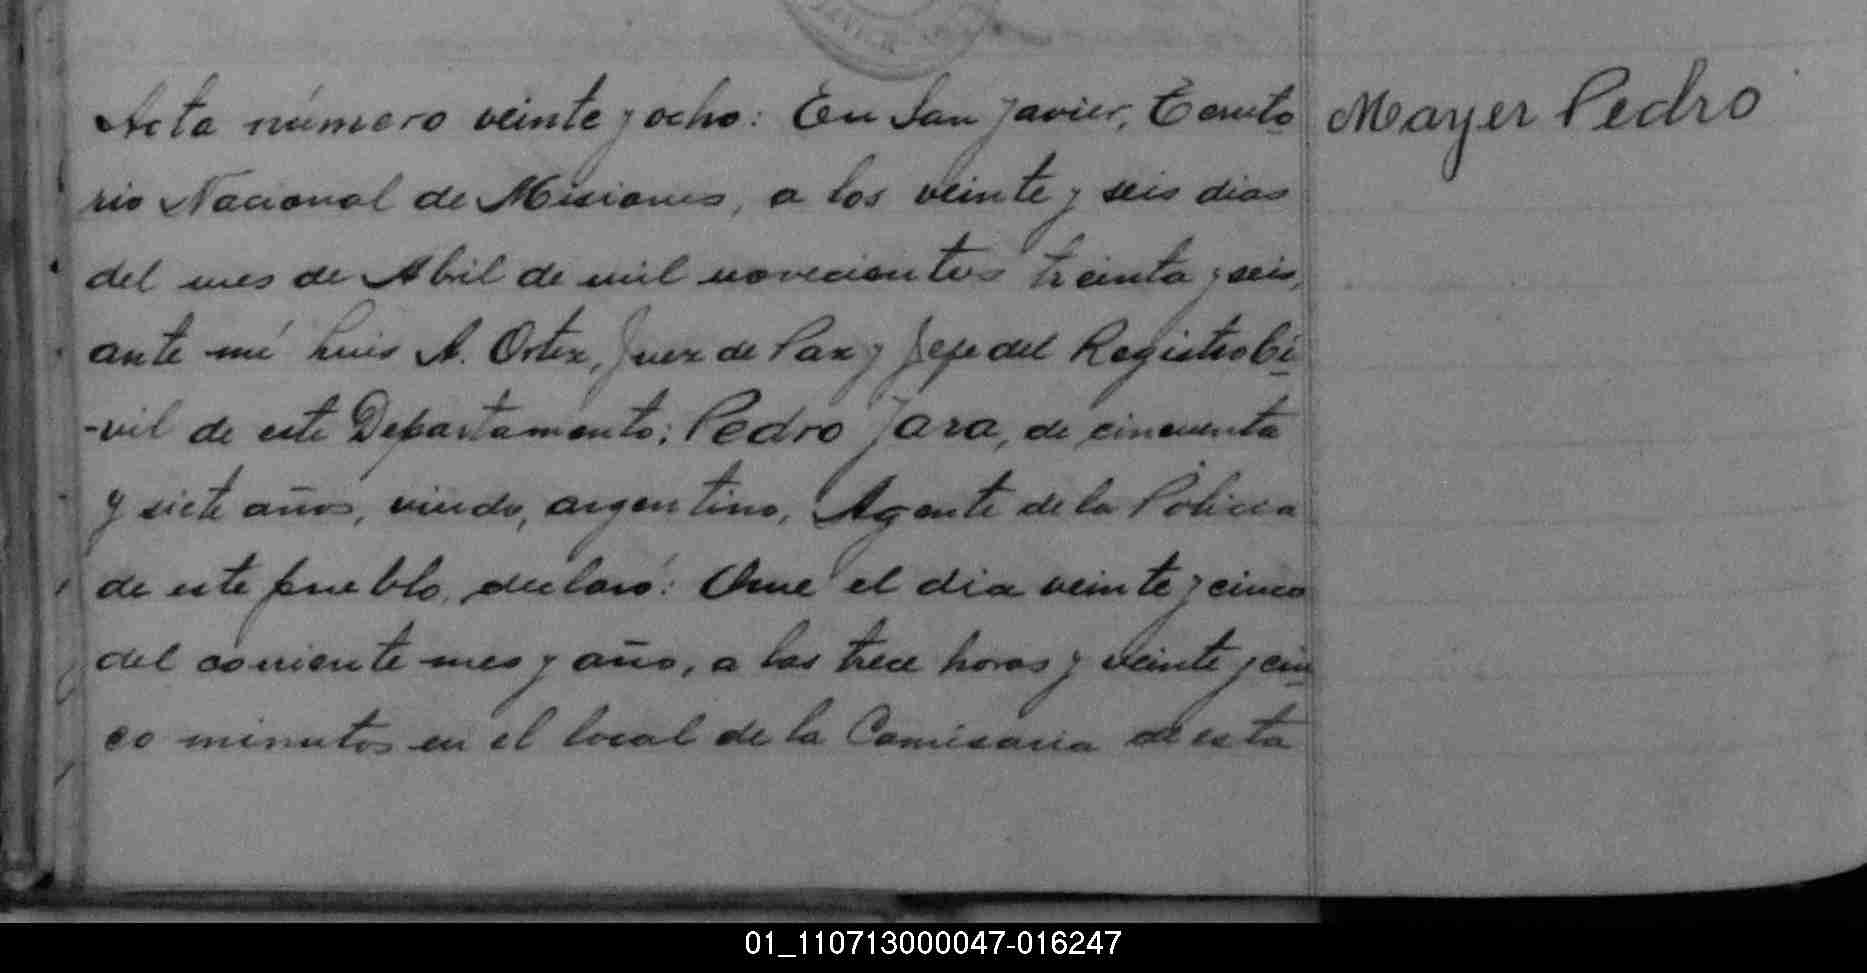 Acta número veinte y ocho: En San Javier, Territo
Mayer Pedro
rio Nacional de Misiones, a los veinte y seis dias
del mes de Abril de mil novecientos treinta y seis,
ante mí Luis A. Ortiz, Juez de Paz y Jefe del Registro Ci
-vil de este Departamento: Pedro Jara, de cincuenta
y siete años, viudo, argentino, Agente de la Policia
de este pueblo, declaró: Que el dia veinte y cinco
del corriente mes y año, a las trece horas y veinte y cin
co minutos en el local de la Comisaria de esta
01_110713000047-016247